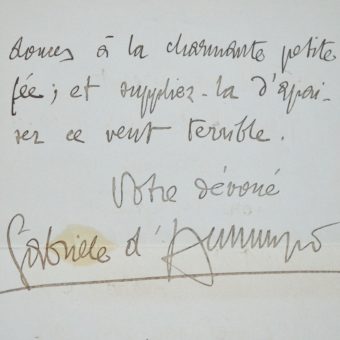 douces à la charmante petite
fée; et suppliez-la d'apai-
ser ce vent terrible.
Votre dévoué
Gabriele d'Annunzio